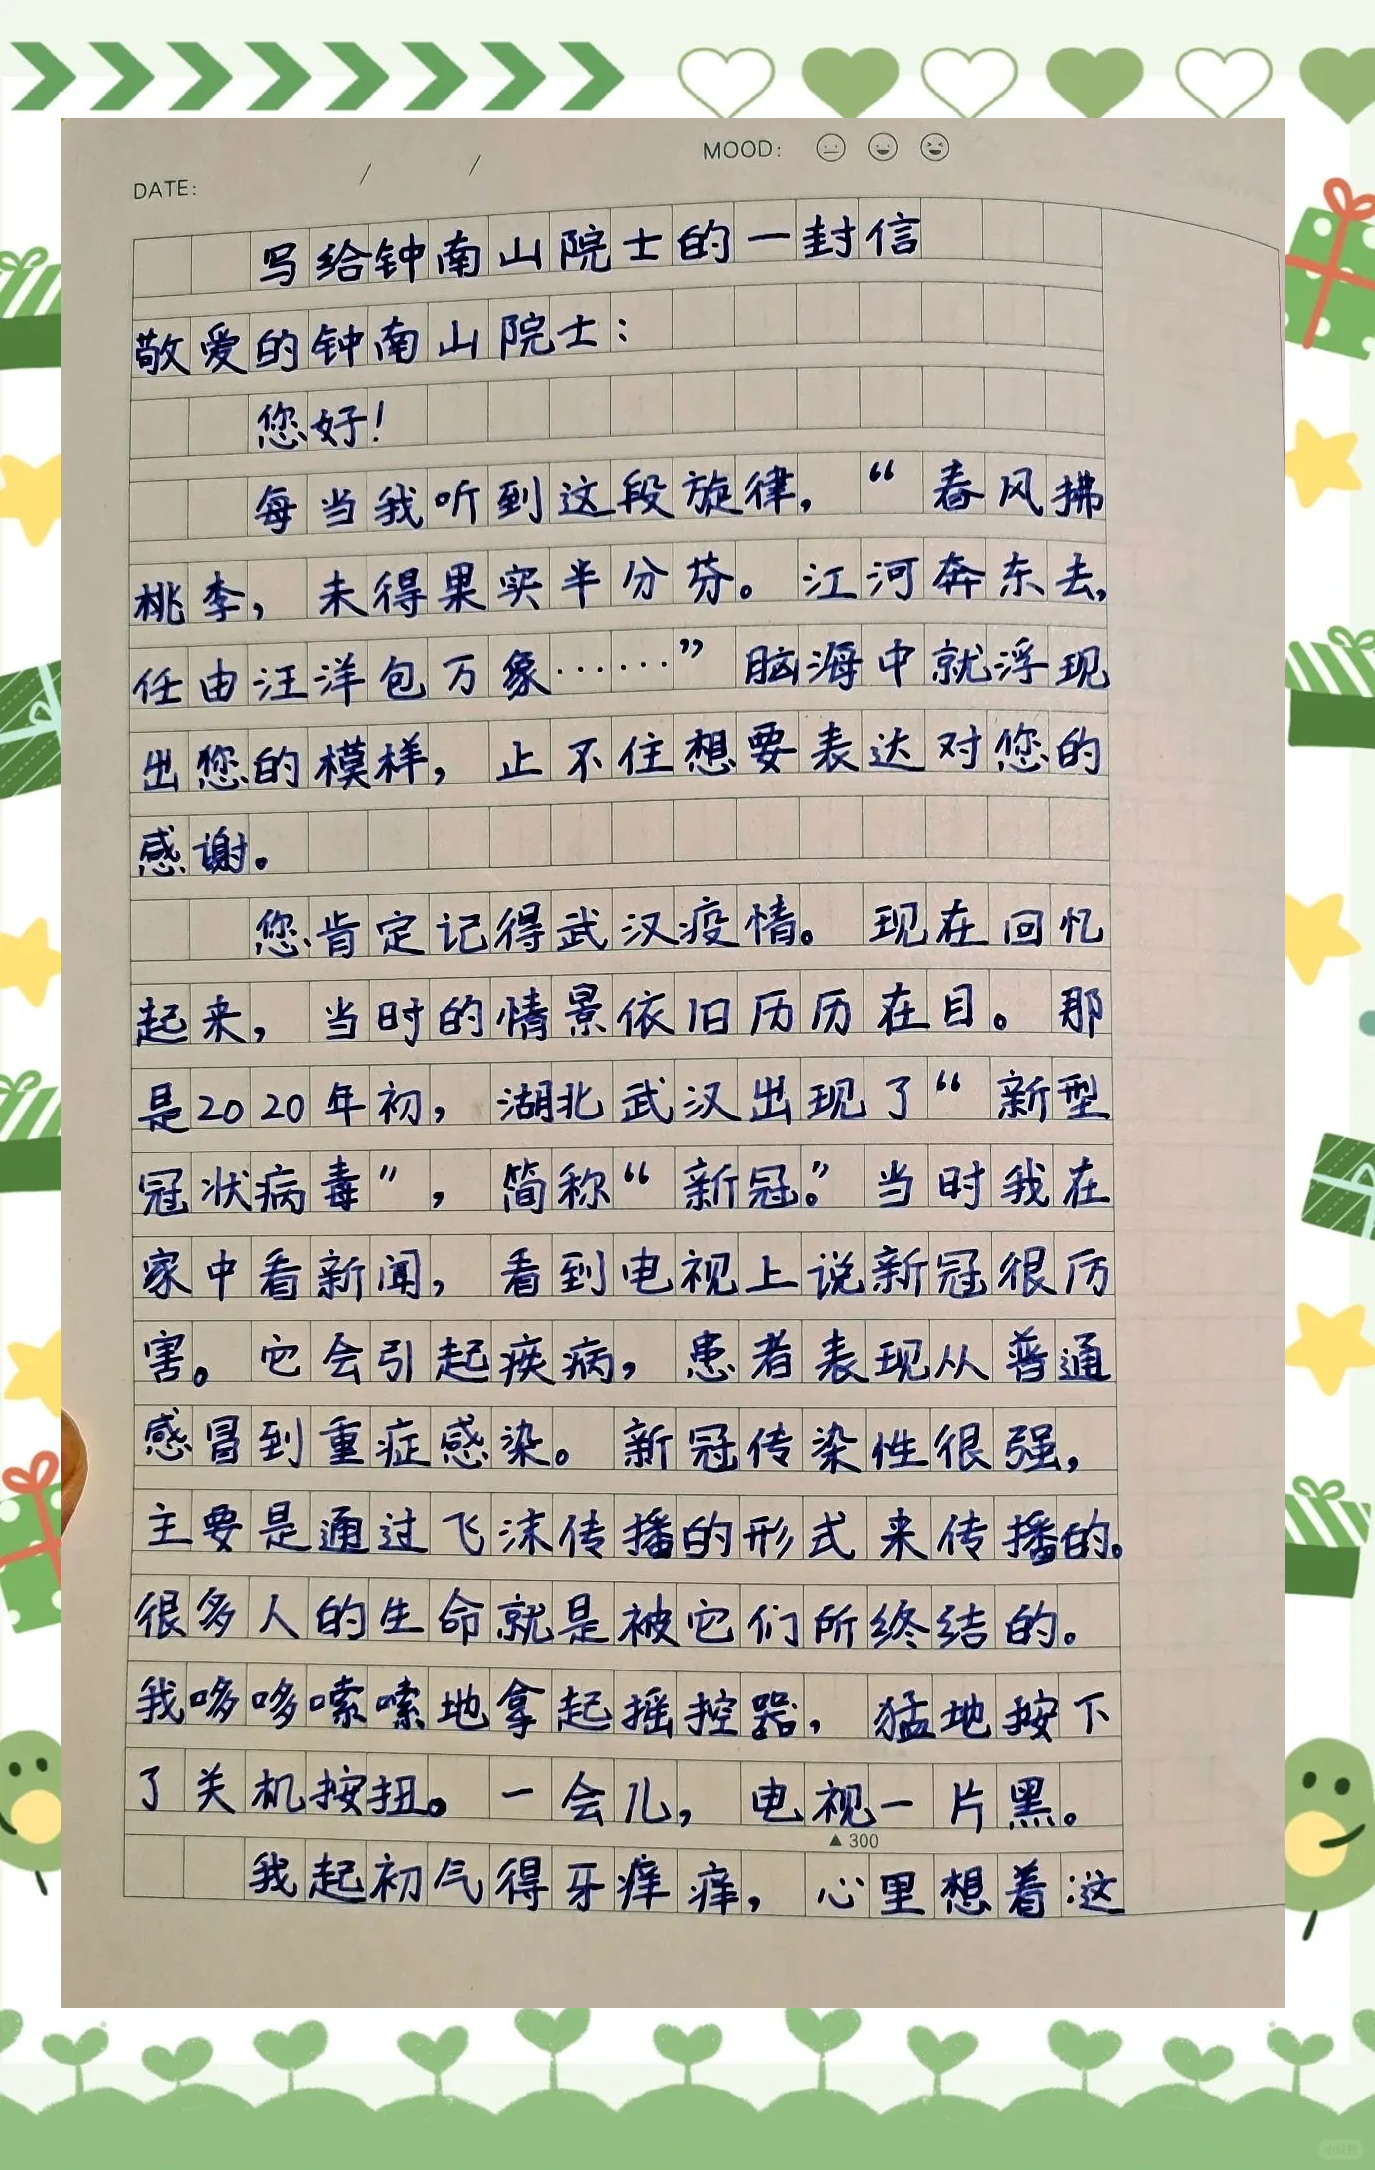 MOOD:
DATE: / /
写给钟南山院士的一封信
敬爱的钟南山院士：
您好！
每当我听到这段旋律，“春风拂
桃李，未得果实半分芬。江河奔东去，
任由汪洋包万象……”脑海中就浮现
出您的模样，止不住想要表达对您的
感谢。
您肯定记得武汉疫情。现在回忆
起来，当时的情景依旧历历在目。那
是2020年初，湖北武汉出现了“新型
冠状病毒”，简称“新冠。”当时我在
家中看新闻，看到电视上说新冠很厉
害。它会引起疾病，患者表现从普通
感冒到重症感染。新冠传染性很强，
主要是通过飞沫传播的形式来传播的。
很多人的生命就是被它们所终结的。
我哆哆嗦嗦地拿起摇控器，猛地按下
了关机按扭。一会儿，电视一片黑。
▲300
我起初气得牙痒痒，心里想着这
小红书